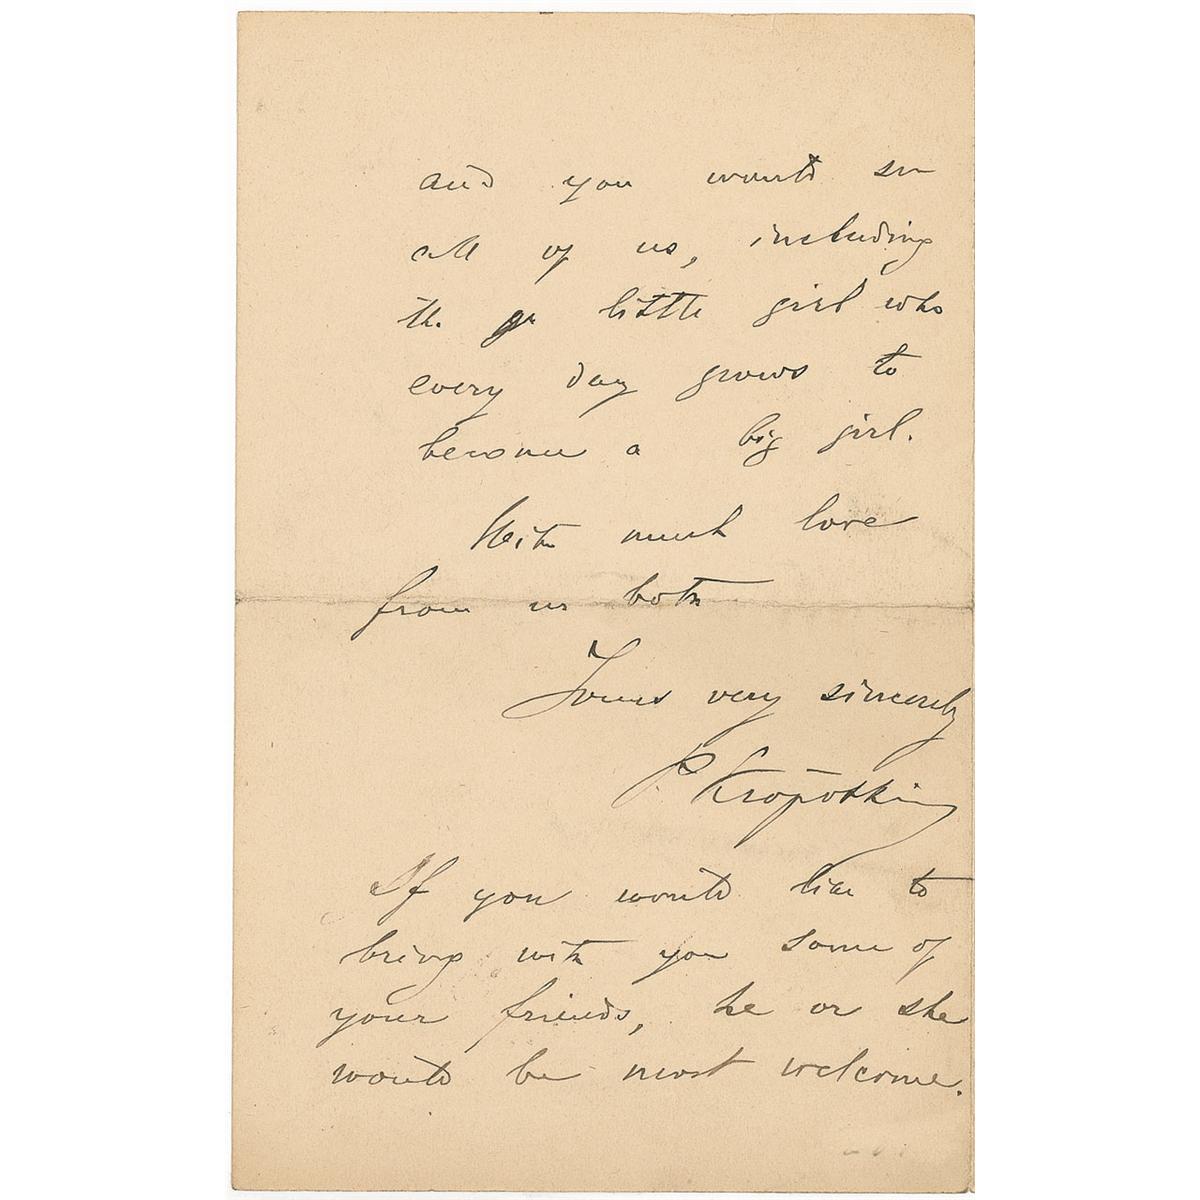 and you would see
all of us, including
the little girl who
every day grows to
become a big girl.
With much love
from us both
Yours very sincerely
P. Kropotkin
If you would like to
bring with you some of
your friends, he or she
would be most welcome.